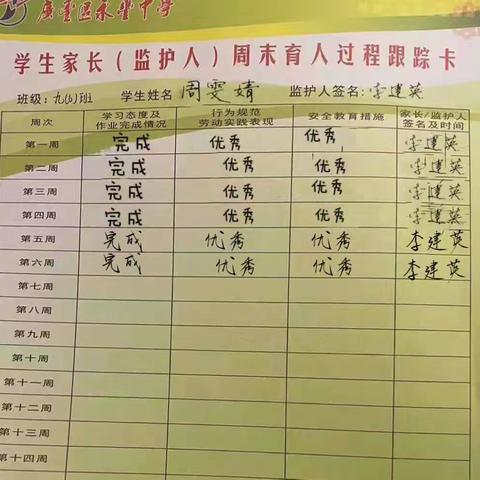 广丰区永丰中学
学生家长（监护人）周末育人过程跟踪卡
班级：九(6)班 学生姓名 周雯婧 监护人签名：李建英
周次 学习态度及作业完成情况 行为规范劳动实践表现 安全教育措施 家长/监护人签名及时间
第一周 完成 优秀 优秀 李建英
第二周 完成 优秀 优秀 李建英
第三周 完成 优秀 优秀 李建英
第四周 完成 优秀 优秀 李建英
第五周 完成 优秀 优秀 李建英
第六周 完成 优秀 优秀 李建英
第七周
第八周
第九周
第十周
第十一周
第十二周
第十三周
第十四周